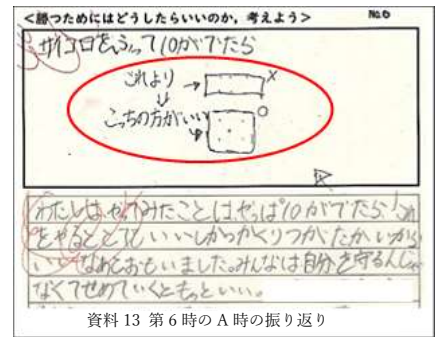 <勝つためにはどうしたらいいのか，考えよう>
No.6
サイコロをふって10がでたら
これより
→
×
こっちの方がいい
○
わたしは、やってみたことは、やっぱ10がでたら!これ
をやるととてもいいし
いいなあとおもいました。みんなは自分を守るんじゃ
なくてせめていくともっといい。
資料 13 第 6 時の A 時の振り返り